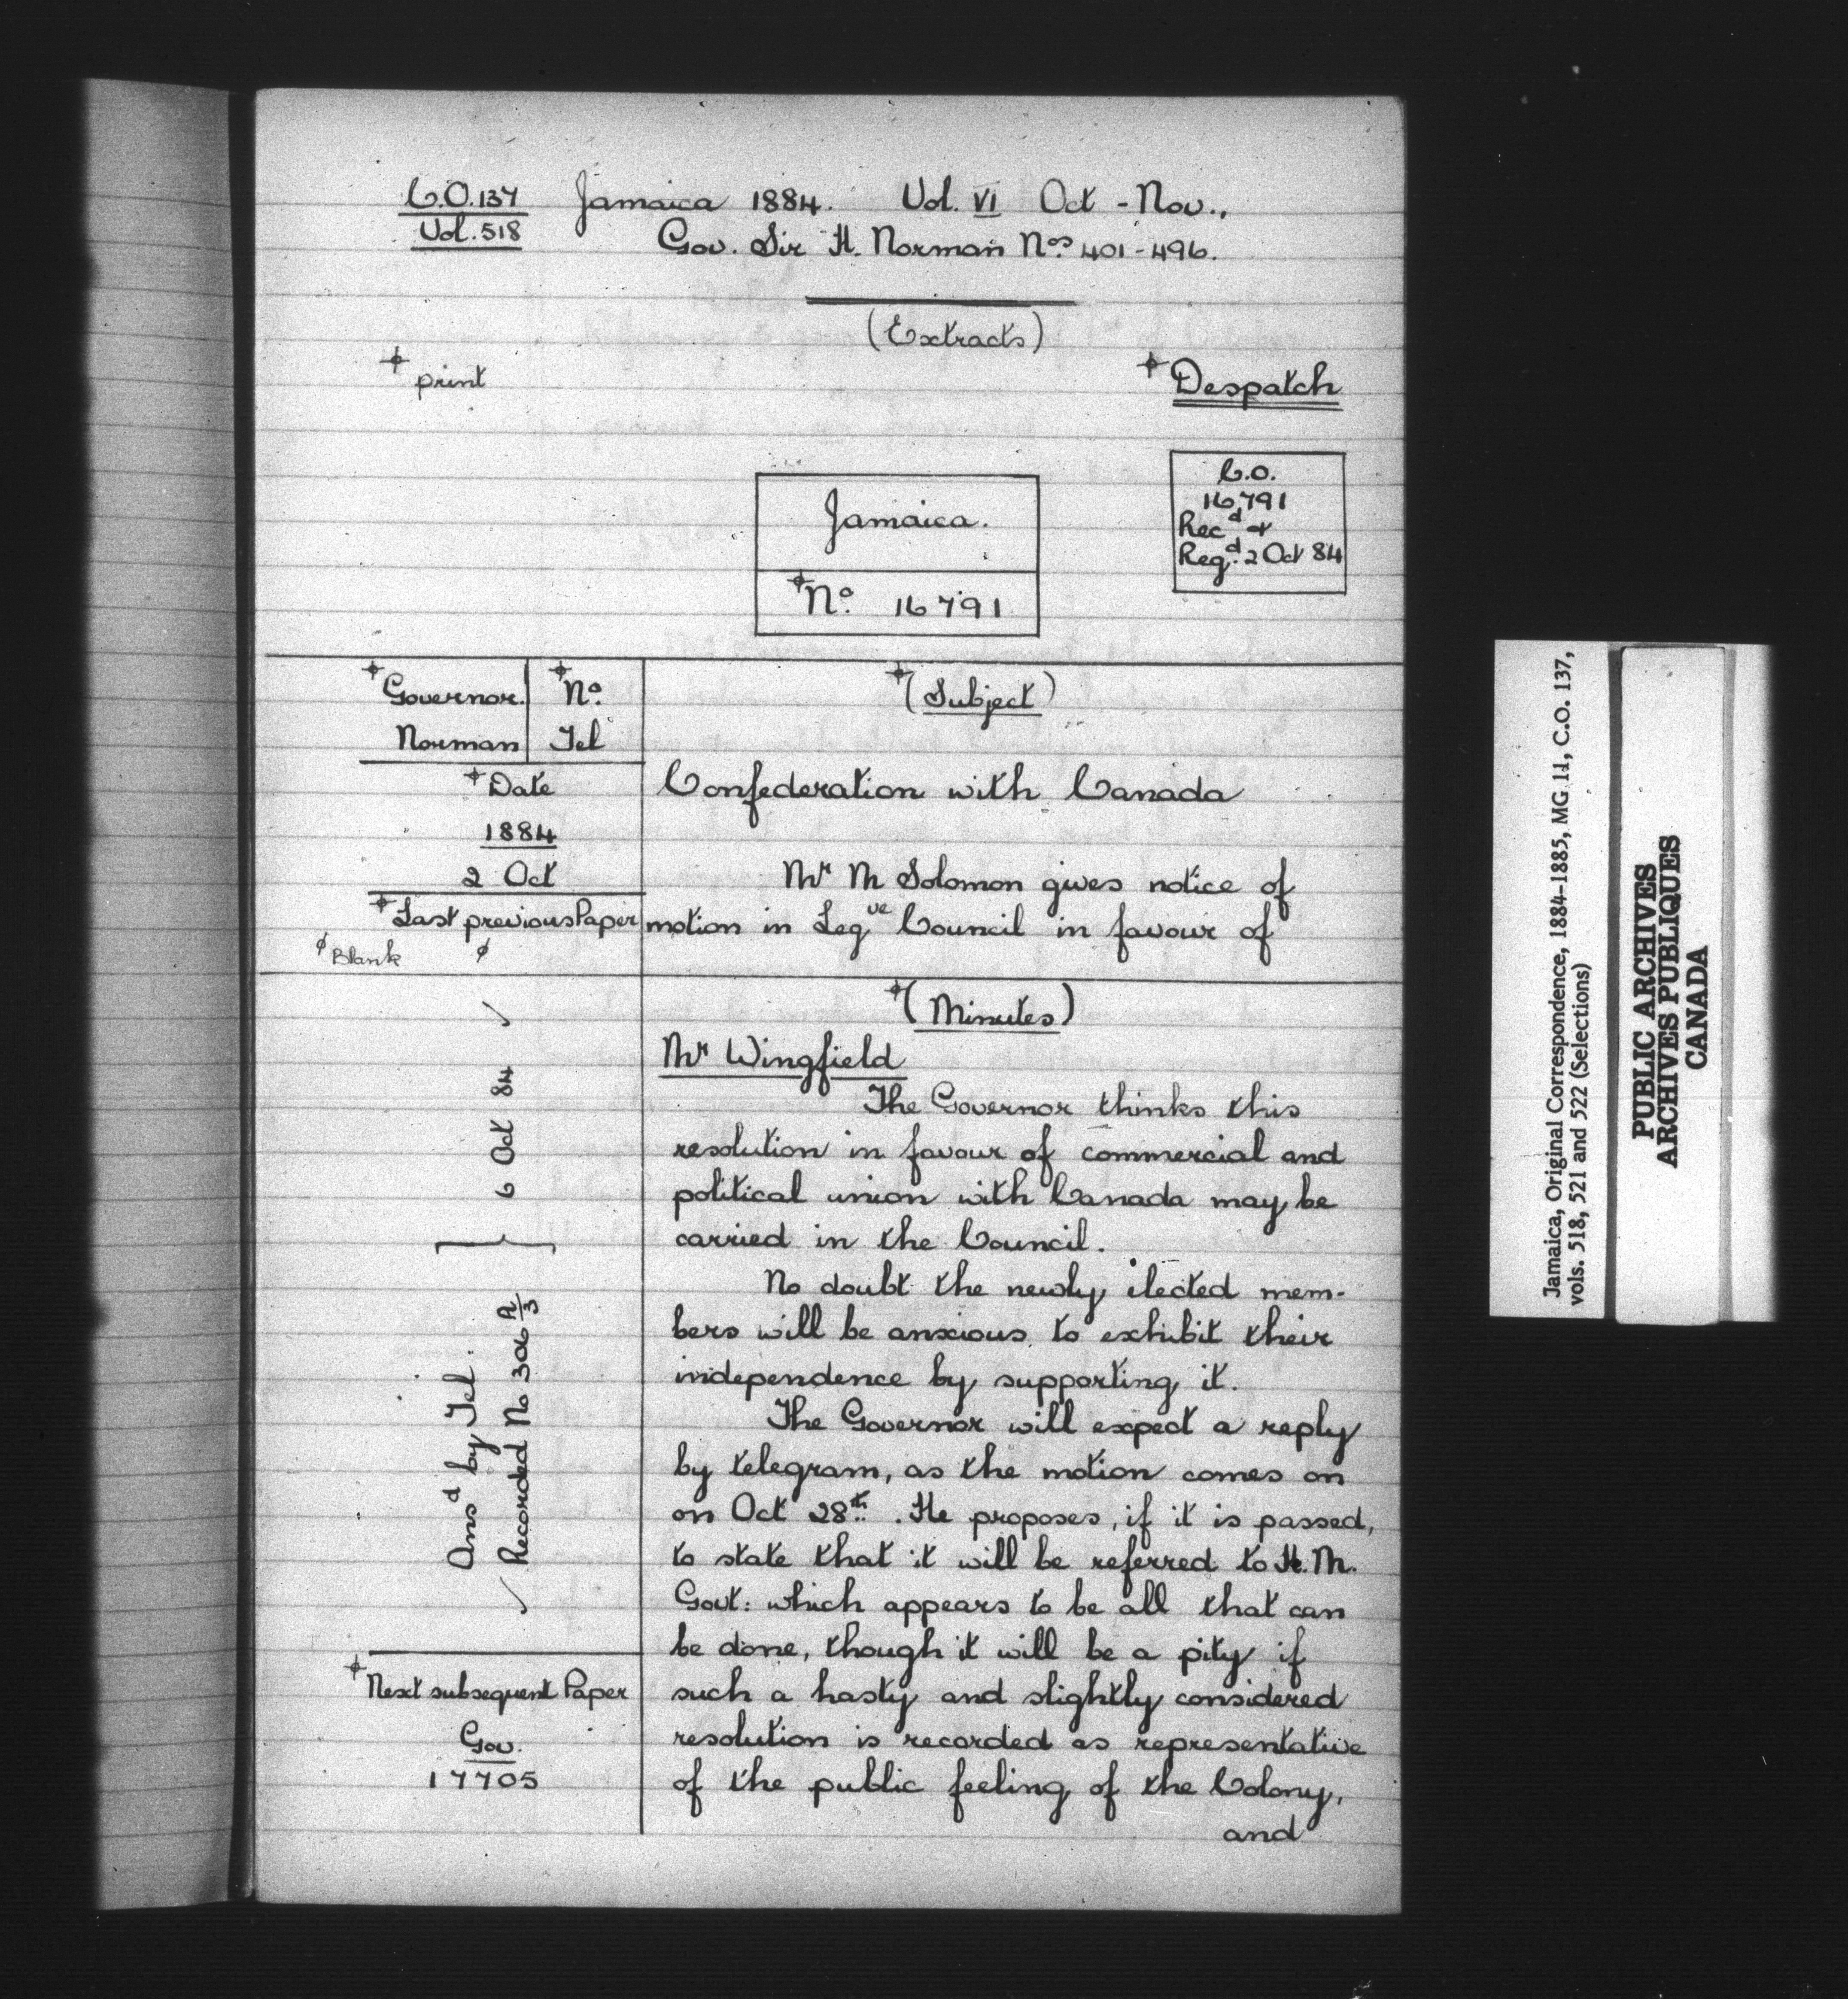 C.O. 137 Jamaica 1884. Vol. VI Oct - Nov.,
Vol. 518 Gov. Sir H. Norman Nos 401-496.
(Extracts)
print
Despatch
C.O.
16791
Recd &
Regd. 2 Oct 84
Jamaica.
No. 16791
Governor. No.
Norman Tel
Date
1884
2 Oct
Last previous Paper
Blank
(Subject)
Confederation with Canada
Mr M Solomon gives notice of
motion in Legve Council in favour of
Ansd by Tel.
Recorded No 306 } 6 Oct 84
Next subsequent Paper
Gov.
17705
(Minutes)
Mr Wingfield
The Governor thinks this
resolution in favour of commercial and
political union with Canada may be
carried in the Council.
No doubt the newly elected mem-
bers will be anxious to exhibit their
independence by supporting it.
The Governor will expect a reply
by telegram, as the motion comes on
on Oct 28th. He proposes, if it is passed,
to state that it will be referred to H.M.
Govt: which appears to be all that can
be done, though it will be a pity if
such a hasty and slightly considered
resolution is recorded as representative
of the public feeling of the Colony,
and
Jamaica, Original Correspondence, 1884-1885, MG 11, C.O. 137,
vols. 518, 521 and 522 (Selections)
PUBLIC ARCHIVES
ARCHIVES PUBLIQUES
CANADA